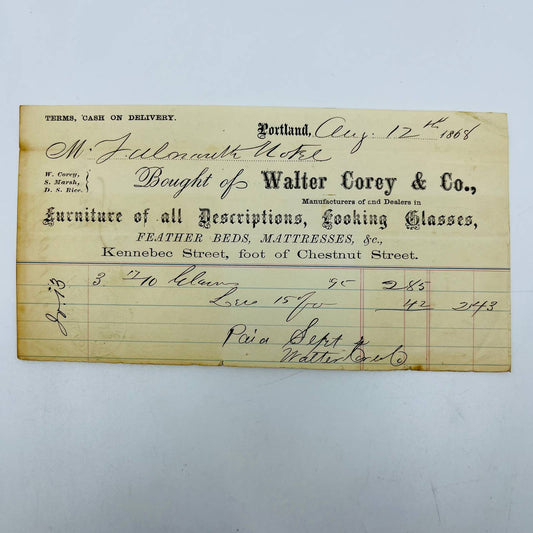 TERMS, CASH ON DELIVERY.
Portland, Aug. 12th 1868
M. Falmouth Hotel
W. Corey,
S. Marsh,
D. S. Rice.
Bought of Walter Corey & Co.,
Manufacturers of and Dealers in
Furniture of all Descriptions, Looking Glasses,
FEATHER BEDS, MATTRESSES, &c.,
Kennebec Street, foot of Chestnut Street.
3 95 2 85
Less 15 % 42 2 43
Paid Sept
Walter Corey & Co